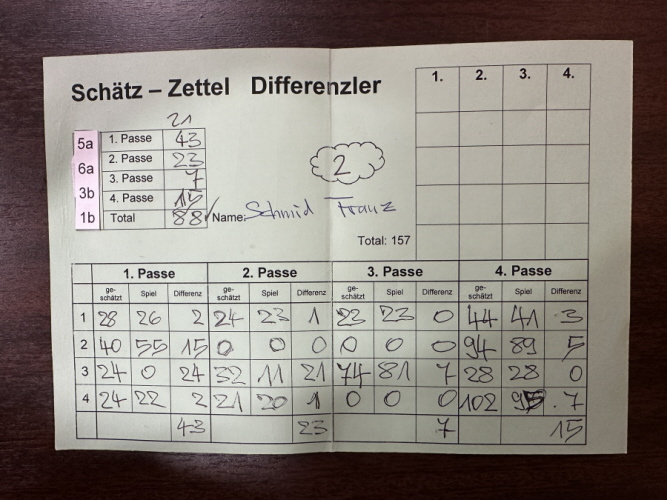 Schätz – Zettel Differenzler
1. 2. 3. 4.
21
5a 1. Passe 43
6a 2. Passe 23
3b 3. Passe 7
1b 4. Passe 15
Total 88
2
Name: Schmid Franz
Total: 157
1. Passe 2. Passe 3. Passe 4. Passe
ge-schätzt Spiel Differenz ge-schätzt Spiel Differenz ge-schätzt Spiel Differenz ge-schätzt Spiel Differenz
1 28 26 2 24 23 1 23 23 0 44 41 3
2 40 55 15 0 0 0 0 0 0 94 89 5
3 24 0 24 32 11 21 74 81 7 28 28 0
4 24 22 2 21 20 1 0 0 0 102 95 7
43 23 7 15